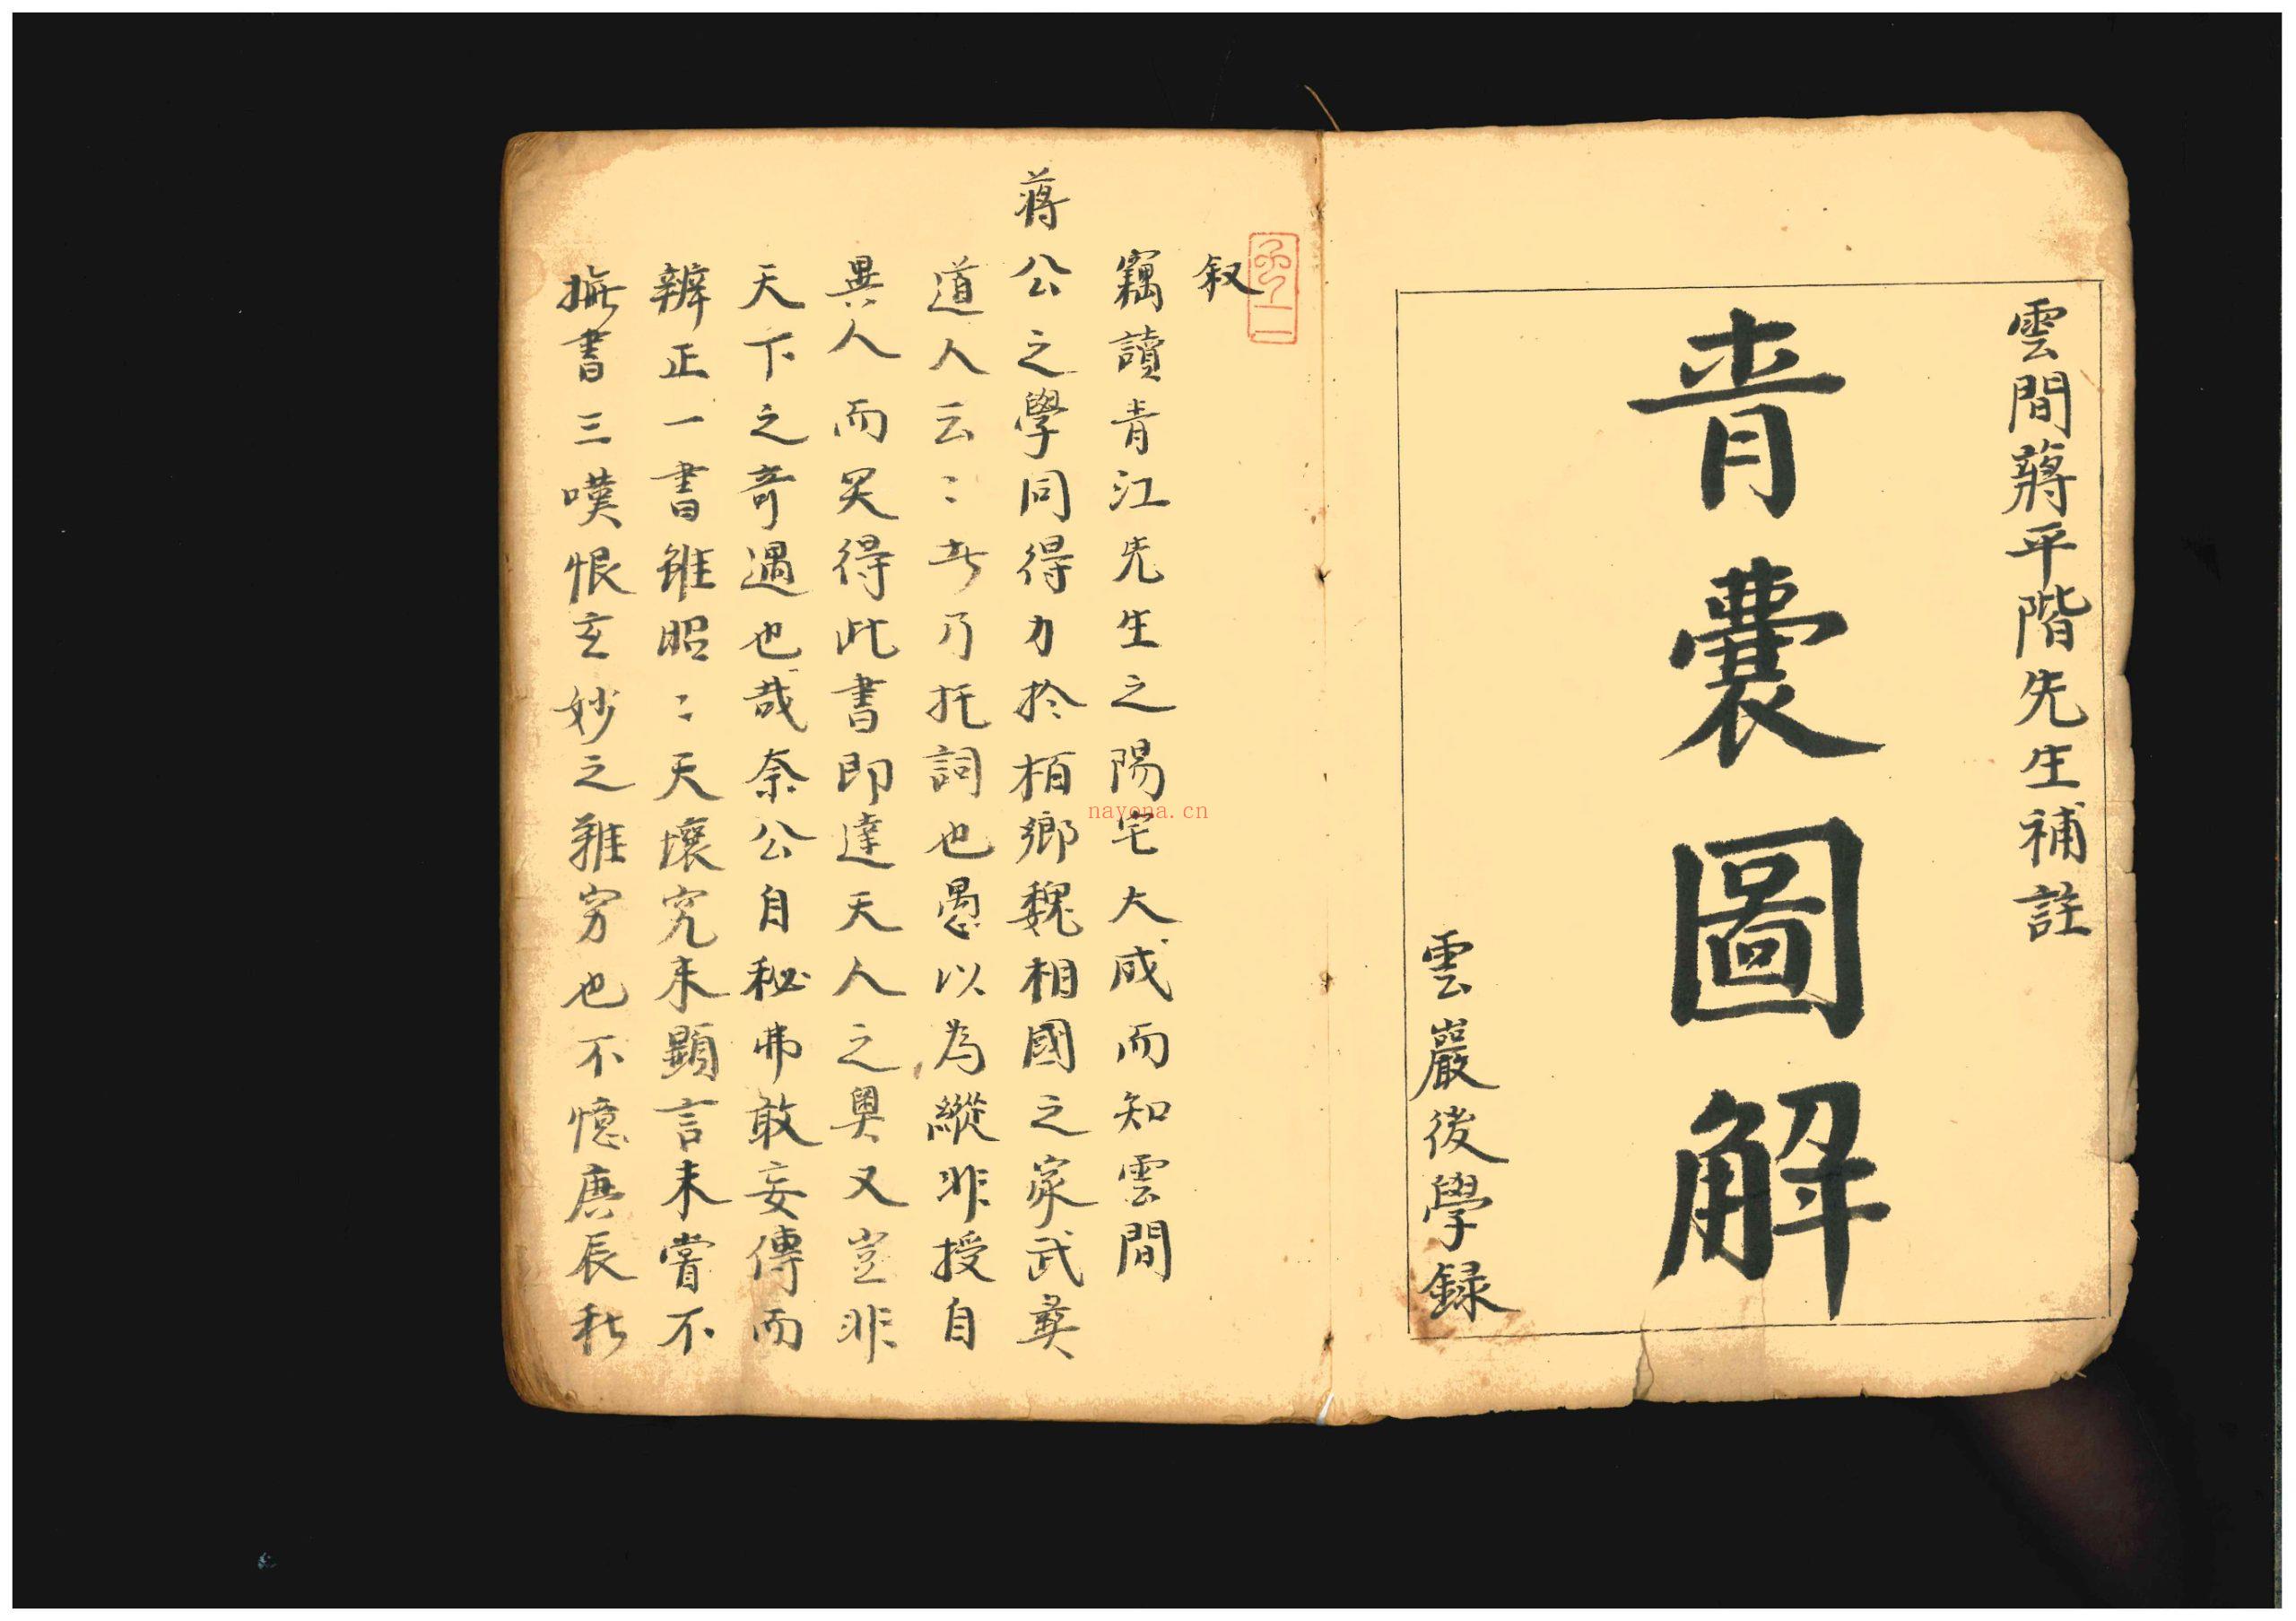 雲間蔣平階先生補註
青囊圖解
雲巖後學録
叙
竊讀青江先生之陽宅大成而知雲間
蔣公之學同得力於栢鄉魏相國之家武彛
道人云〻此乃托詞也愚以為縱非授自
異人而又得此書即達天人之奥又豈非
天下之奇遇也哉奈公自秘弗敢妄傳而
辨正一書雖昭〻天壤究未顯言未嘗不
撫書三嘆恨玄妙之難穷也不憶庚辰秋
nayona.cn